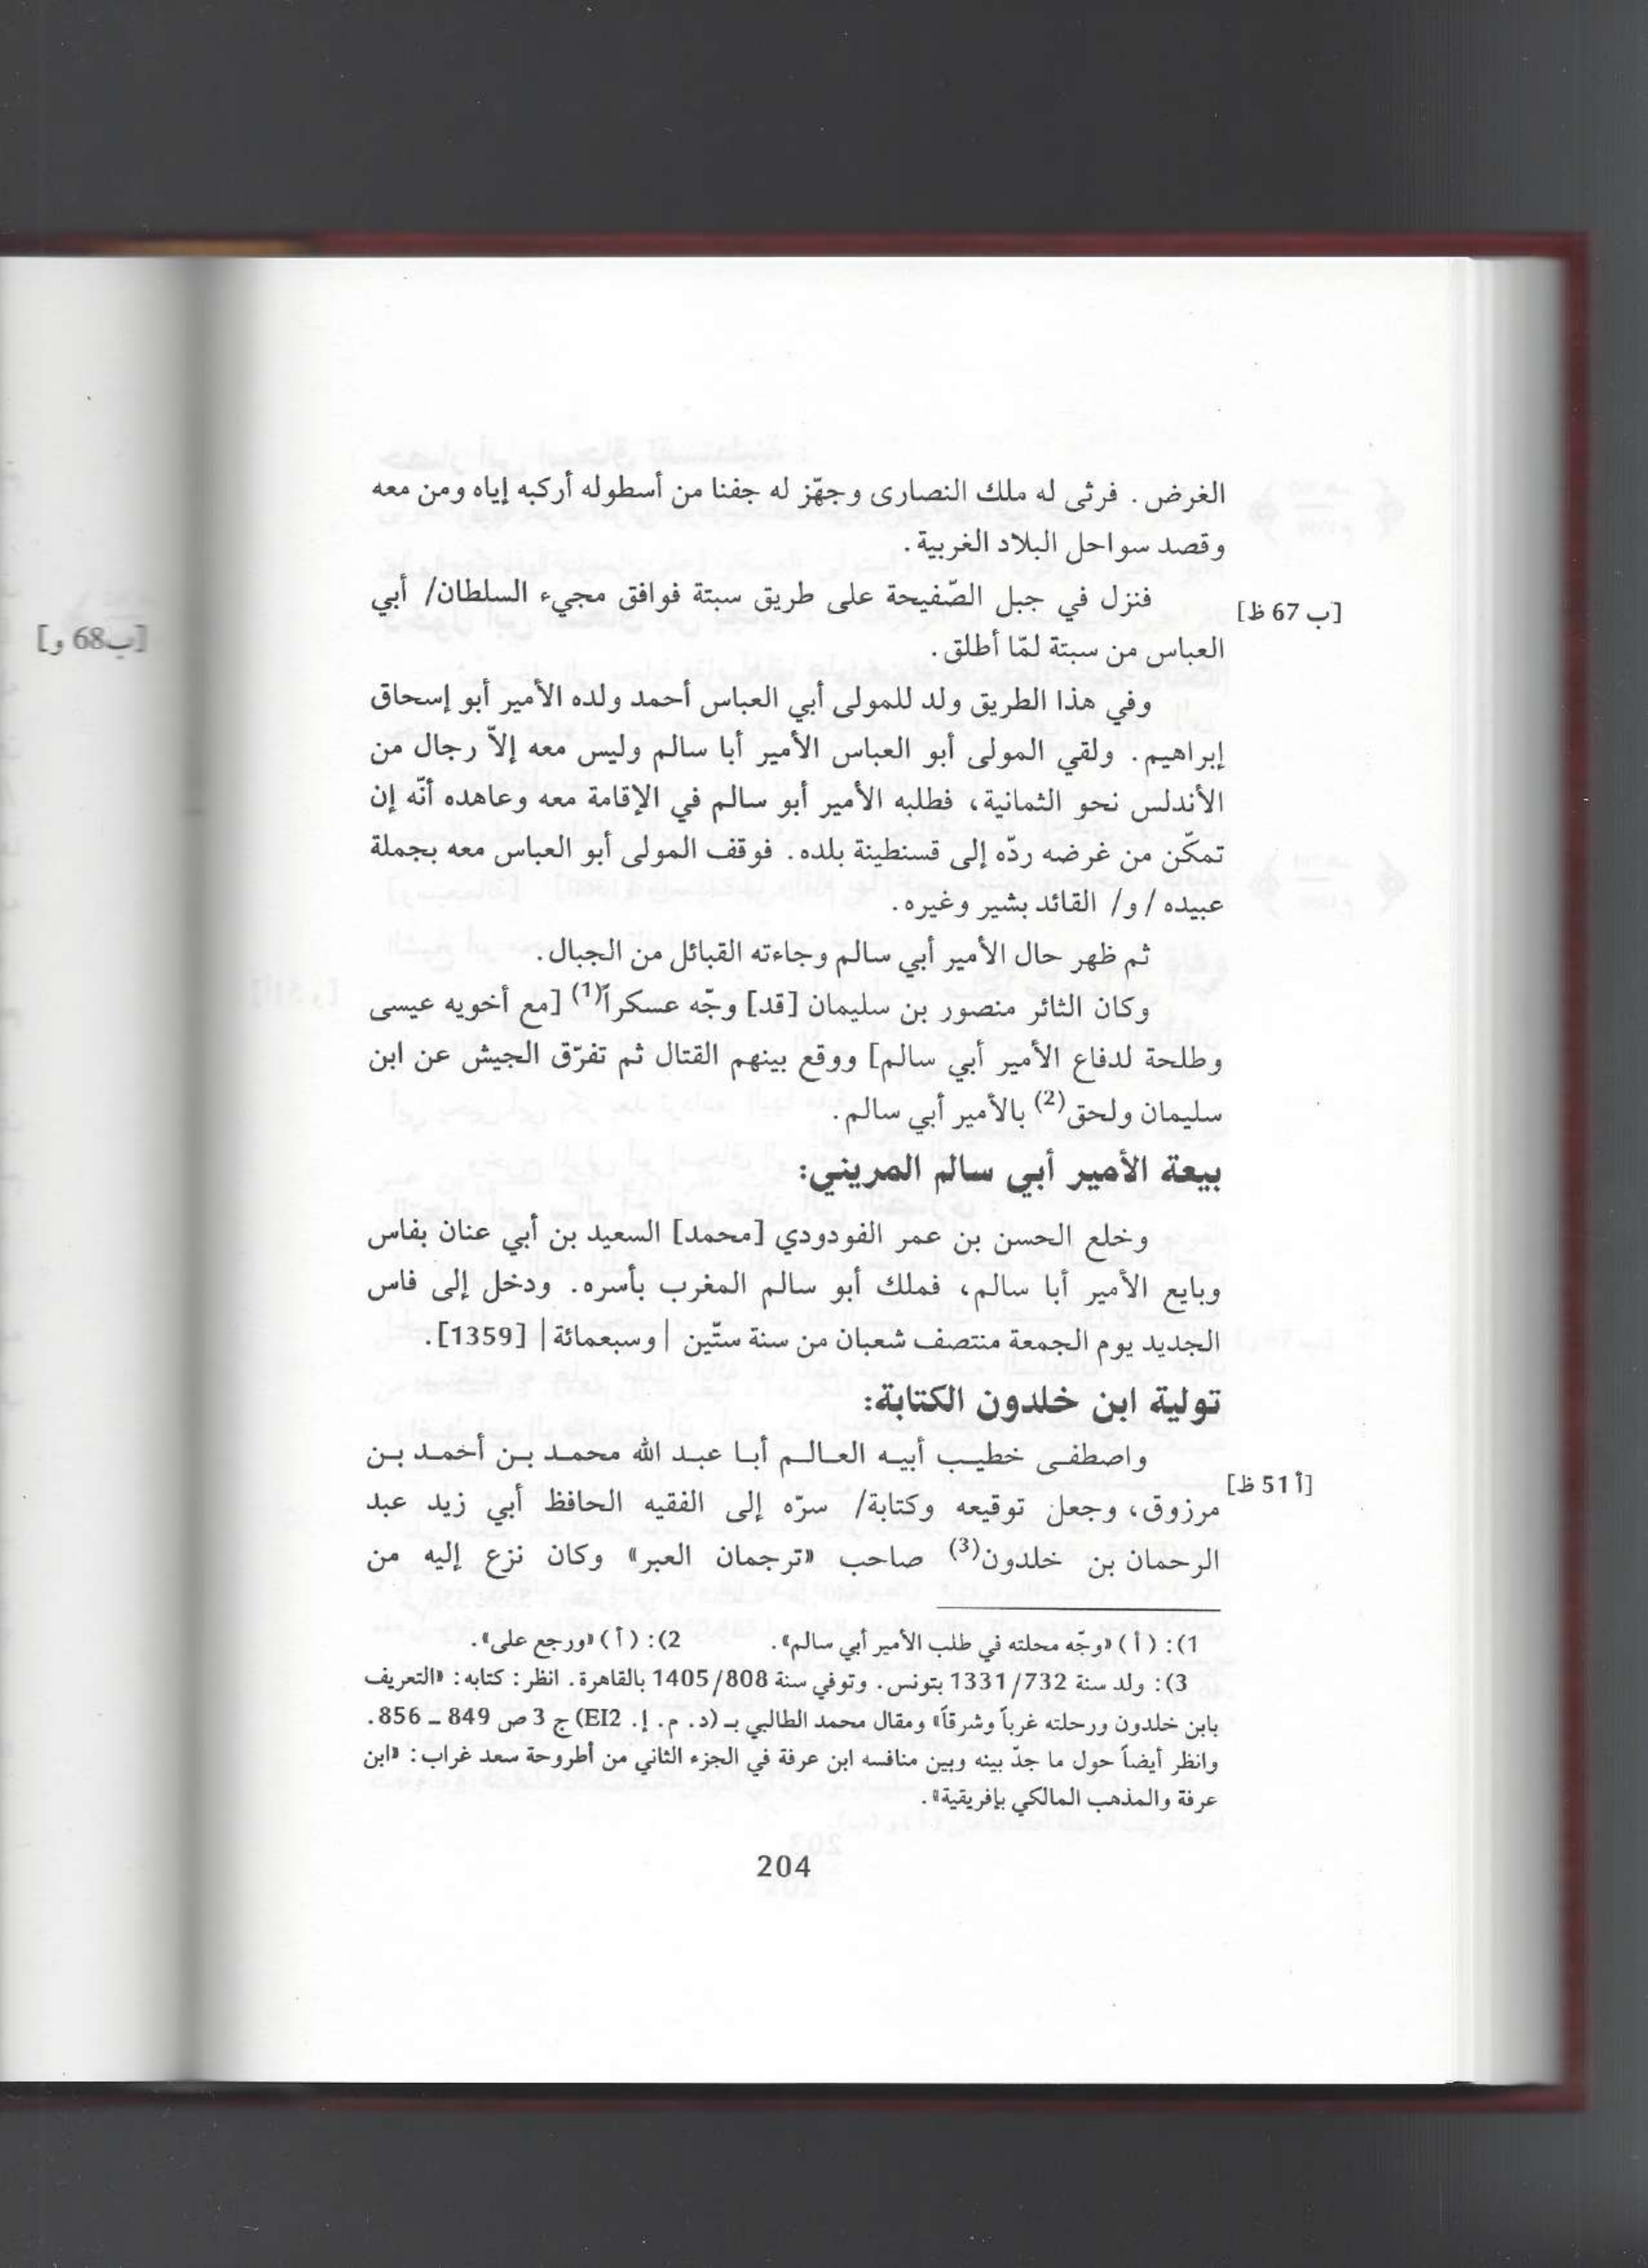 الغرض. فرثى له ملك النصارى وجهّز له جفنا من أسطوله أركبه إياه ومن معه
وقصد سواحل البلاد الغربية.
[ب 67 ظ]
فنزل في جبل الصّفيحة على طريق سبتة فوافق مجيء السلطان/ أبي
العباس من سبتة لمّا أطلق.
وفي هذا الطريق ولد للمولى أبي العباس أحمد ولده الأمير أبو إسحاق
إبراهيم. ولقي المولى أبو العباس الأمير أبا سالم وليس معه إلاّ رجال من
الأندلس نحو الثمانية، فطلبه الأمير أبو سالم في الإقامة معه وعاهده أنّه إن
تمكّن من غرضه ردّه إلى قسنطينة بلده. فوقف المولى أبو العباس معه بجملة
عبيده /و/ القائد بشير وغيره.
ثم ظهر حال الأمير أبي سالم وجاءته القبائل من الجبال.
وكان الثائر منصور بن سليمان [قد] وجّه عسكراً(1) [مع أخويه عيسى
وطلحة لدفاع الأمير أبي سالم] ووقع بينهم القتال ثم تفرّق الجيش عن ابن
سليمان ولحق(2) بالأمير أبي سالم.
بيعة الأمير أبي سالم المريني:
وخلع الحسن بن عمر الفودودي [محمد] السعيد بن أبي عنان بفاس
وبايع الأمير أبا سالم، فملك أبو سالم المغرب بأسره. ودخل إلى فاس
الجديد يوم الجمعة منتصف شعبان من سنة ستّين |وسبعمائة| [1359].
تولية ابن خلدون الكتابة:
واصطفى خطيب أبيه العالم أبا عبد الله محمد بن أحمد بن
[أ 51 ظ]
مرزوق، وجعل توقيعه وكتابة/ سرّه إلى الفقيه الحافظ أبي زيد عبد
الرحمان بن خلدون(3) صاحب «ترجمان العبر» وكان نزع إليه من
1): (أ) «وجّه محلته في طلب الأمير أبي سالم». 2): (أ) «ورجع على».
3): ولد سنة 732/1331 بتونس. وتوفي سنة 808/1405 بالقاهرة. انظر: كتابه: «التعريف
بابن خلدون ورحلته غرباً وشرقاً» ومقال محمد الطالبي بـ (د. م. إ. EI2) ج 3 ص 849 ـ 856.
وانظر أيضاً حول ما جدّ بينه وبين منافسه ابن عرفة في الجزء الثاني من أطروحة سعد غراب: «ابن
عرفة والمذهب المالكي بإفريقية».
204
[ب68 و]